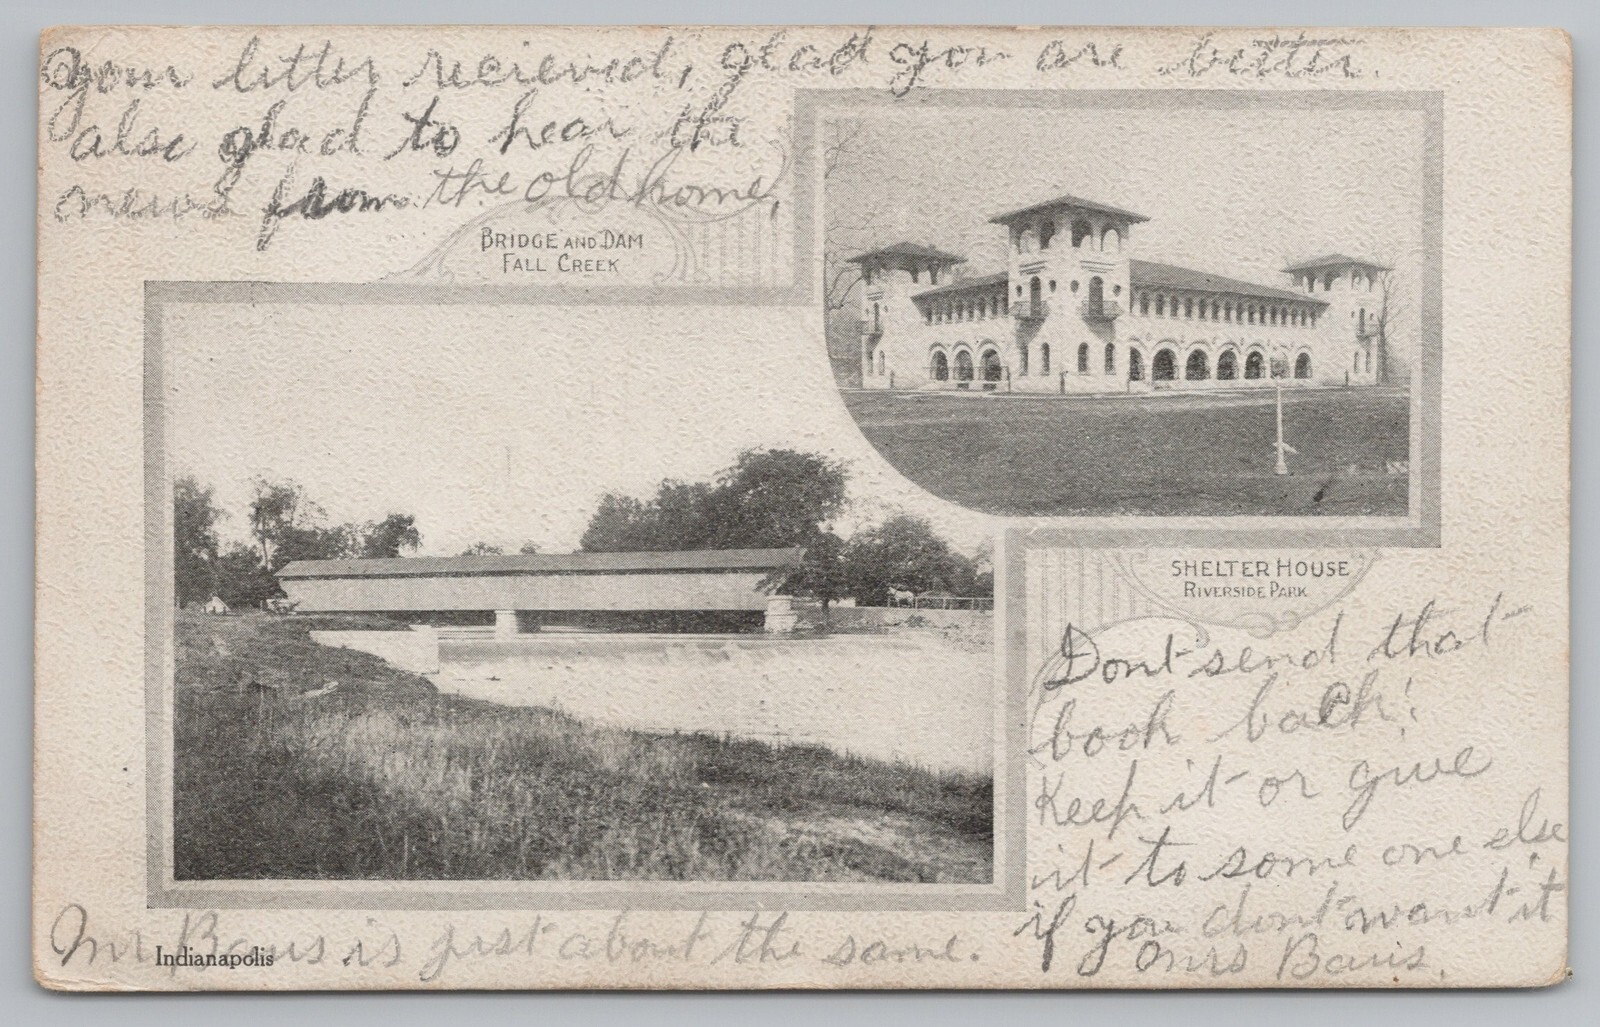 your letter recieved, glad you are better.
also glad to hear the
news from the old home,
BRIDGE AND DAM
FALL CREEK
SHELTER HOUSE
RIVERSIDE PARK
Dont send that
book back!
Keep it or give
it to some one else
if you dont want it
Mrs Baus.
Mr Baus is just about the same.
Indianapolis